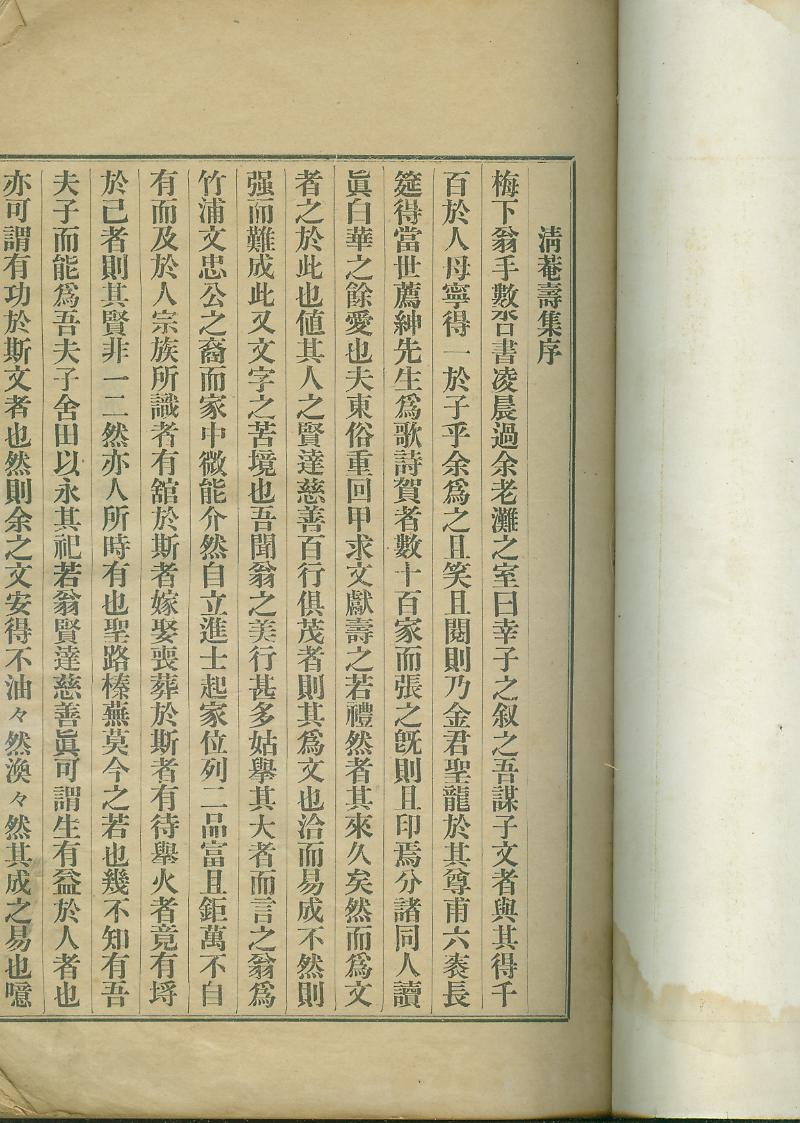 淸菴壽集序
梅下翁手數呇書凌晨過余老灘之室曰幸子之叙之吾謀子文者與其得千
百於人毋寧得一於子乎余爲之且笑且閱則乃金君聖龍於其尊甫六袠長
筵得當世薦紳先生爲歌詩賀者數十百家而張之旣則且印焉分諸同人讀
眞白華之餘愛也夫東俗重回甲求文獻壽之若禮然者其來久矣然而爲文
者之於此也値其人之賢達慈善百行俱茂者則其爲文也洽而易成不然則
强而難成此又文字之苦境也吾聞翁之美行甚多姑擧其大者而言之翁爲
竹浦文忠公之裔而家中微能介然自立進士起家位列二品富且鉅萬不自
有而及於人宗族所識者有舘於斯者嫁娶喪葬於斯者有待擧火者竟有埓
於己者則其賢非一二然亦人所時有也聖路榛蕪莫今之若也幾不知有吾
夫子而能爲吾夫子舍田以永其祀若翁賢達慈善眞可謂生有益於人者也
亦可謂有功於斯文者也然則余之文安得不油々然渙々然其成之易也噫